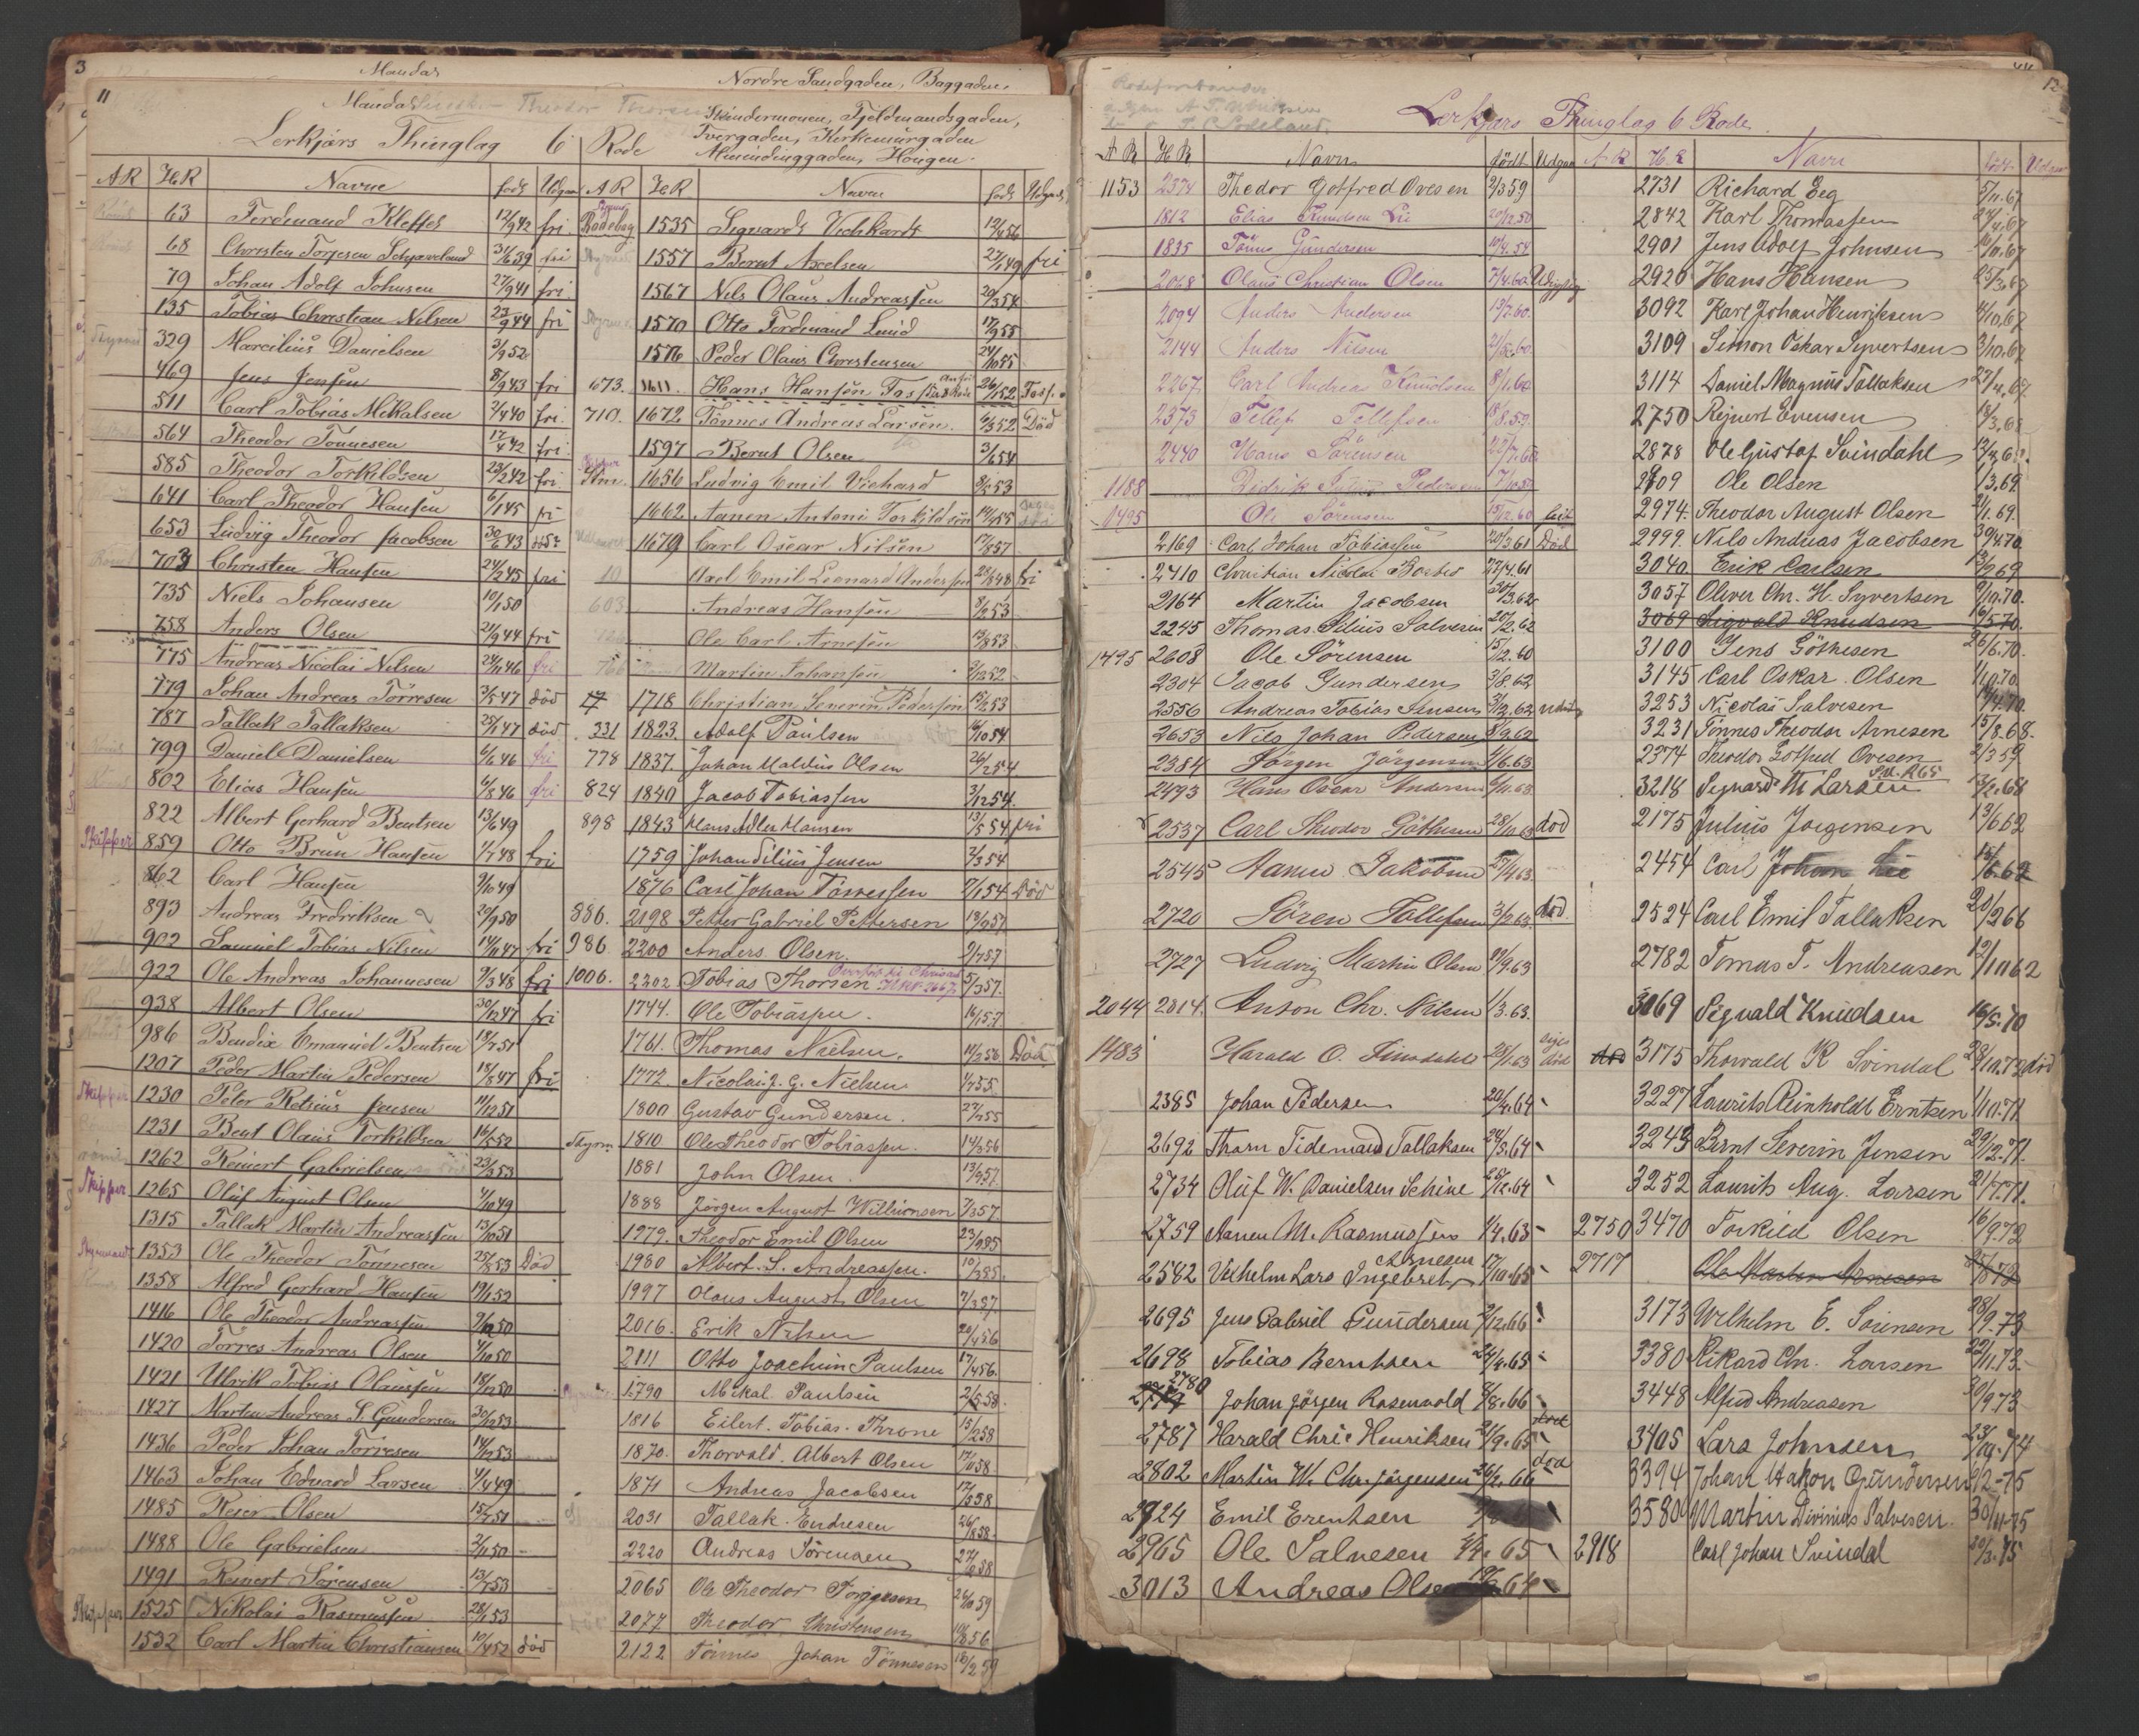 3
Mandal
Nordre Sandgaden, Baggaden,
11
Mandal
Skindermoen, Fjeldmandsgaden,
Lerkjærs Thinglag 6 Rode
Tvergaden, Kirkemurgaden
Almendinggaden, Haugen.
AR HR Navne født Udgaa
63 Ferdinand Kleffel 12/9 42 fri
68 Christen Torjesen 31/6 39 fri
79 Johan Adolf Johnsen 27/9 41 fri
135 Tobias Christian Nilsen 23/9 44 fri
329 Marcilius Danielsen 3/9 52
469 Jens Jensen 8/9 43 fri
511 Carl Tobias Mikalsen 2/4 40 fri
564 Theodor Tönnesen 17/4 42 fri
585 Theodor Torkildsen 23/2 42 fri
641 Carl Theodor Hansen 6/1 45 fri
653 Ludvig Theodor Jacobsen 30/6 43
703 Christen Hansen 24/2 45 fri
735 Niels Johansen 10/1 50
758 Anders Olsen 21/9 44 fri
775 Andreas Nicolai Nilsen 24/11 46 fri
779 Johan Andreas Törresen 3/5 47 död
787 Tallak Tallaksen 25/1 47 död
799 Daniel Danielsen 6/6 46 fri
802 Elias Hansen 6/8 46 fri
822 Albert Gerhard Bentsen 13/6 49
Skipper 859 Otto Brun Hansen 1/7 48 fri
862 Carl Hansen 9/10 49
893 Andreas Fredriksen 20/9 50
902 Samuel Tobias Nilsen 14/11 47 fri
922 Ole Andreas Johannesen 9/3 48 fri
938 Albert Olsen 30/12 47 fri
986 Bendix Emanuel Bentsen 18/7 51
1207 Peder Martin Pedersen 18/8 47 fri
Skipper 1230 Peter Retsius Jensen 11/12 51
1231 Bent Olaus Torkildsen 16/5 52
1262 Reinert Gabrielsen 23/3 53
Skipper 1265 Oluf August Olsen 1/10 49
1315 Tallak Martin Andreassen 13/10 51
Styrmand 1353 Ole Theodor Tönnesen 25/8 53 Död
1358 Alfred Gerhard Hansen 19/1 52
1416 Ole Theodor Andreassen 9/12 50
1420 Törres Andreas Olsen 4/10 50
1421 Ulrik Tobias Olaussen 18/12 50
1427 Martin Andreas S. Gundersen 30/12 53
1436 Peder Johan Törresen 14/12 53
1463 Johan Edvard Larsen 4/4 49
1485 Reier Olsen 15/7 51
1488 Ole Gabrielsen 2/11 50
1491 Reinert Sörensen 13/7 53
Skipper 1525 Nikolai Rasmussen 28/1 53
1532 Carl Martin Christiansen 10/4 52 död
AR HR Navne født Udgaa
Rodebog 1535 Sigvard Vichhardt 12/4 56
1557 Bernt Axelsen 27/1 49 fri
1567 Nils Olaus Andreassen 20/3 54
1570 Otto Ferdinand Lund 17/9 55
1576 Peder Olaus Christensen 24/10 55
673. 1611. Hans Hansen 26/1 52
710. 1672 Tönnes Andreas Larsen. 6/3 52 Död
1597 Bernt Olsen 3/6 54
1656 Ludvig Emil Vichard 9/2 53
1662 Aanen Antoni Torkildsen 14/4 55
1679 Carl Oscar Nilsen 17/8 57
10 Axel Emil Leonard Andersen 23/8 48 fri
603 Andreas Hansen 8/2 53
Ole Carl Arnesen 13/8 53
Martin Johansen 3/12 52
17 1718 Christian Severin Pedersen 15/2 53
331 1823. Adolf Paulsen 16/10 54
778 1837. Johan Maldus Olsen 26/2 54
824 1840 Jacob Tobiassen 3/12 54.
898 1843 Hans Adler Hansen 13/5 54 fri
1759 Johan Silius Jensen 2/3 54
1876 Carl Johan Törresen 7/1 54 Död
886. 2198 Petter Gabriel Pettersen 18/9 57
986 2200 Anders Olsen. 9/7 57
1006. 2202 Tobias Thorsen 5/3 57.
1744. Ole Tobiassen. 16/1 57
1761. Thomas Nielsen. 14/2 56 Död
1772. Nicolai J. G. Nielsen 4/7 55
1800 Gustav Gundersen. 27/2 55
Styrm. 1810 Ole Theodor Tobiassen 14/3 56
1881 John Olsen. 13/9 57
1888 Jörgen August Willumsen 7/3 57
1979. Theodor Emil Olsen 23/9 85
1980 Albert. S. Andreassen. 10/3 85
1997 Olaus August Olsen 7/3 87
2016. Erik Nilsen 20/4 56
2111 Otto Joachim Paulsen 17/4 56
1790 Mikal Paulsen 2/5 58
1816 Eilert. Tobias. Throne 15/2 58
1870. Thorvald. Albert Olsen 17/10 58
1871 Andreas Jacobsen 17/5 58
2031 Tallak. Endresen 26/8 58
2220 Andreas Sörensen 27/10 58
2065 Ole Theodor Torjusen 26/10 59
2077 Theodor Christensen 10/8 56
2122 Tönnes Johan Tönnesen 18/2 59
12
Lerkjærs Thinglag 6 Rode.
AR HR Navn født Udgaa
1153 2374 Thedor Gotfred Ovesen 2/3 59
1812 Elias Knudsen Lie 20/12.50
1835 Tönnes Gundersen 10/4.54
2068 Olaus Christian Olsen 7/4.60
2094 Anders Andersen 13/7.60.
2144 Anders Nilsen 21/5.60.
2267. Carl Andreas Knudsen 8/1.60
2373 Tellef Tellefsen 18/8.59.
2440 Hans Sörensen 22/7.60
1188 Didrik Julius Pedersen 17/10.59
1495 Ole Sörensen 15/12.60
2169 Carl Johan Tobiassen 20/3.61 Död
2410 Christian Nicolai Boeber 27/4.61
2164 Martin Jacobsen 30/3.62
2245 Thomas Silius Salvesen 20/2.62
1495 2608 Ole Sörensen 15/12.60
2304 Jacob Gundersen 3/8.62
2556 Andreas Tobias Jensen 3/12.62
2653 Nils Johan Pedersen 8/9.62
2384 Jörgen Jörgensen 4/6.63
2493 Hans Oscar Andersen 6/11.63
2537 Carl Theodor Göthesen 28/10 63 död
2545 Hans Jakobsen 27/4 63
2720 Sören Tallefsen 3/12 63 död.
2727 Ludvig Martin Olsen 11/9.63
2044 2814. Anton Chr. Nilsen 1/3.63.
1483 Harald O. Svindahl 28/1.63
2385 Johan Pedersen 20/4.64
2692 Thorn Tidemand Tallaksen 24/5.64
2734 Oluf W. Danielsen Schine 25/12.64
2759 Aanen M. Rasmussen 4/4.63
2582 Vilhelm Lars Ingebret Arnesen 17/10.65
2695 Jens Gabriel Gundersen 2/12.66
2698 Tobias Berntsen 24/4.65
2780 Johan Jörgen Rosenvold 8/8.66
2787 Harald Chr. Henriksen 21/9.65 död
2802 Martin W. Chr. Jörgensen 26/2.66 död
2924 Emil Erentsen
2965 Ole Salvesen 4/4.65
3013 Andreas Olsen
AR HR Navn født Udgaa
2731 Richard Eeg 5/11.67
2842 Karl Thomassen 24/4.67
2901 Jens Adolf Johnsen 16/11.67
2920 Hans Hansen 25/3.67
3092 Karl Johan Henriksen 4/10.67
3109 Simon Oskar Syvertsen 3/10.67
3114 Daniel Magnus Tallaksen 27/4.67
2750 Rejnert Evensen 18/3.68
2878 Ole Gustaf Svindahl 13/3.68.
2909 Ole Olsen 1/3.69.
2974. Theodor August Olsen 2/1.69.
2999. Nils Andreas Jacobsen 30/4.70.
3040 Erik Carlsen 13/2.69
3057 Oliver Chr. H. Syvertsen 9/10.70.
3069 Sigvald Knudsen 16/5.70.
3100 Jens Göthesen 26/6.70.
3145 Carl Oskar Olsen 11/10.70.
3253 Nicolai Salvesen 14/4.70
3231 Tönnes Theodor Arnesen 15/8.68.
2374 Theodor Gotfred Ovesen 2/3 59
3218 Sigvard Th Larsen 13/2.68
2175 Julius Jörgensen 13/6 62
2454 Carl Johan Lie 15/6.62
2524 Carl Emil Tallaksen 20/2 66
2782 Tomas T. Andreasen 12/10 62
3069 Sigvald Knudsen 16/5.70
død 3175 Thorvald R Svindal 28/10.72 död
3227 Laurits Reinholdt Erntsen 11/10.71
3243 Bernt Severin Jensen 29/12.71.
3252 Laurits Aug. Larsen 21/7.71.
2750 3470 Torkild Olsen 16/9.72
2717 Ole Martin Arnesen
3173 Wilhelm E. Sörensen 28/9.73
3380 Rikard Chr. Larsen 22/11.73
3448 Alfred Andreasen 30/9.73
3405 Lars Johnsen 23/10.74
3394 Johan Hakon Gundersen 9/2-75
3580 Martin Divinius Salvesen 30/11-75
2918 Carl Johan Svindal 20/3.75